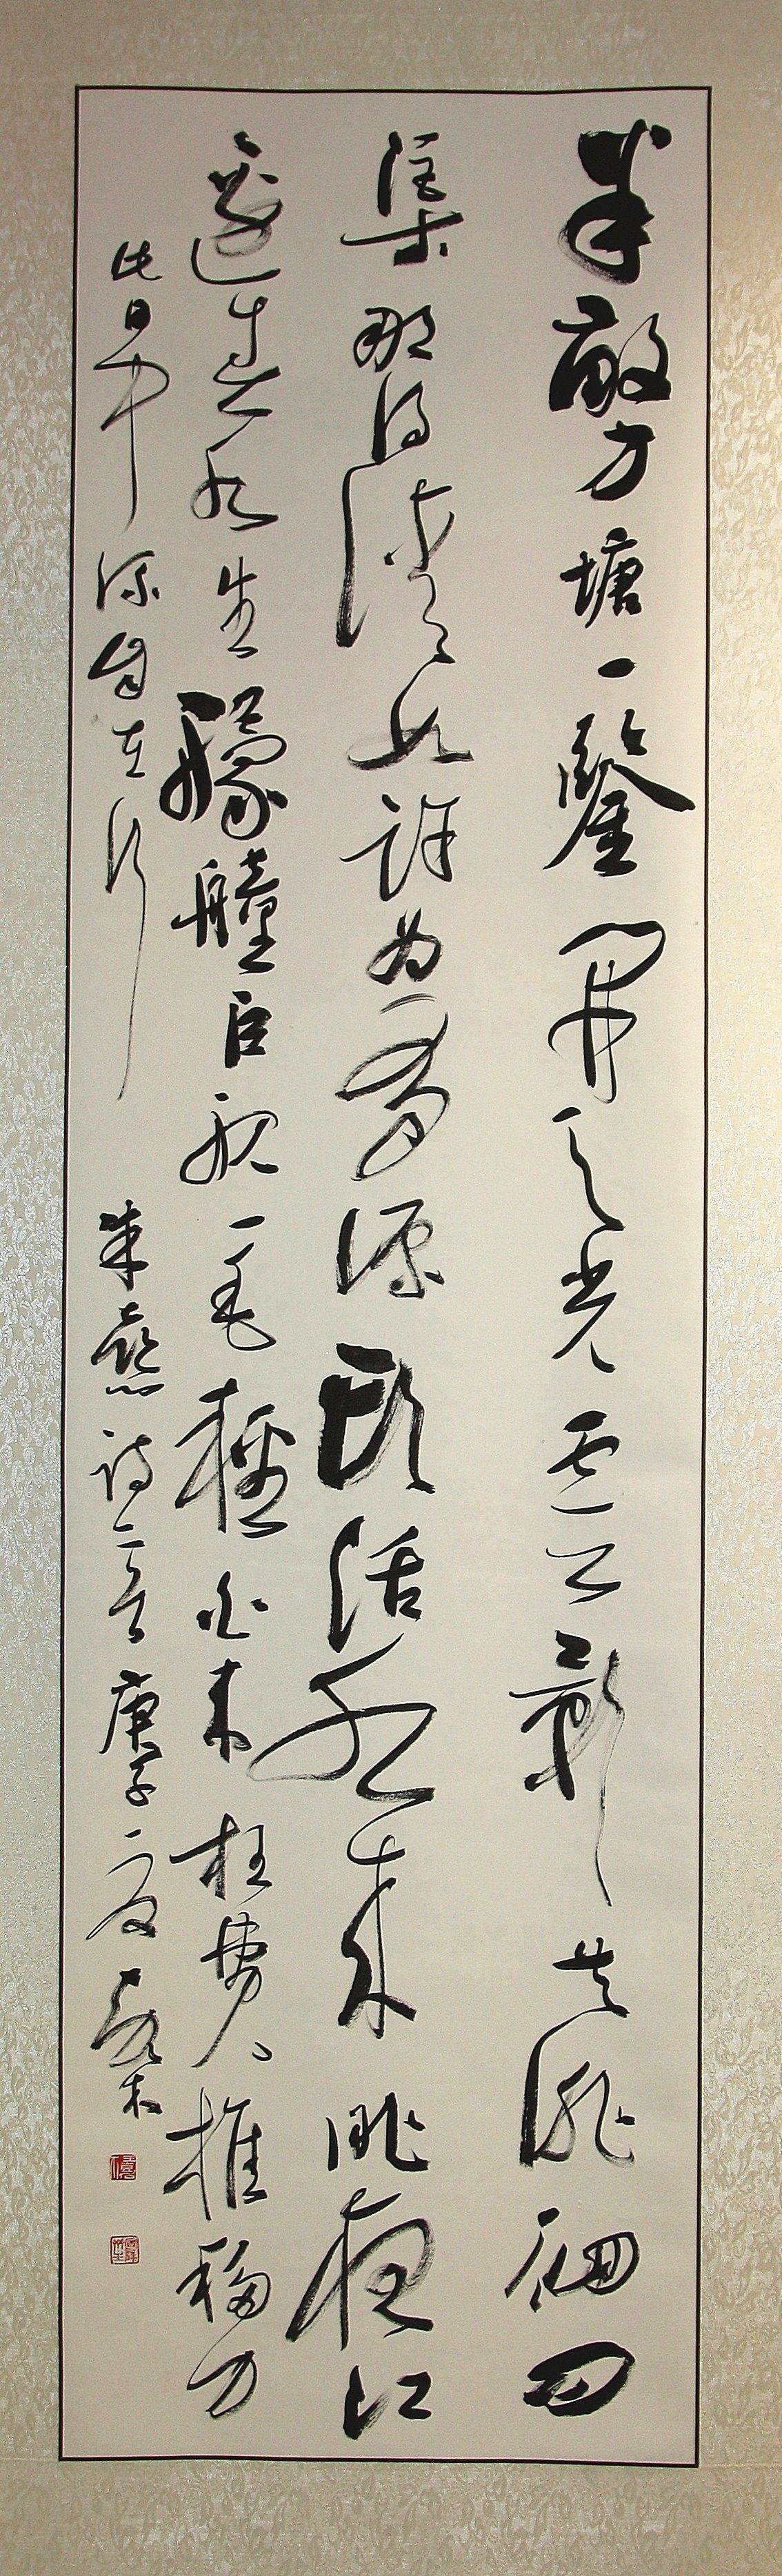 半畝方塘一鑒開天光雲影共徘徊問
渠那得清如許為有源頭活水來昨夜江
邊春水生艨艟巨艦一毛輕向來枉費推移力
此日中流自在行 朱熹詩 庚子夏